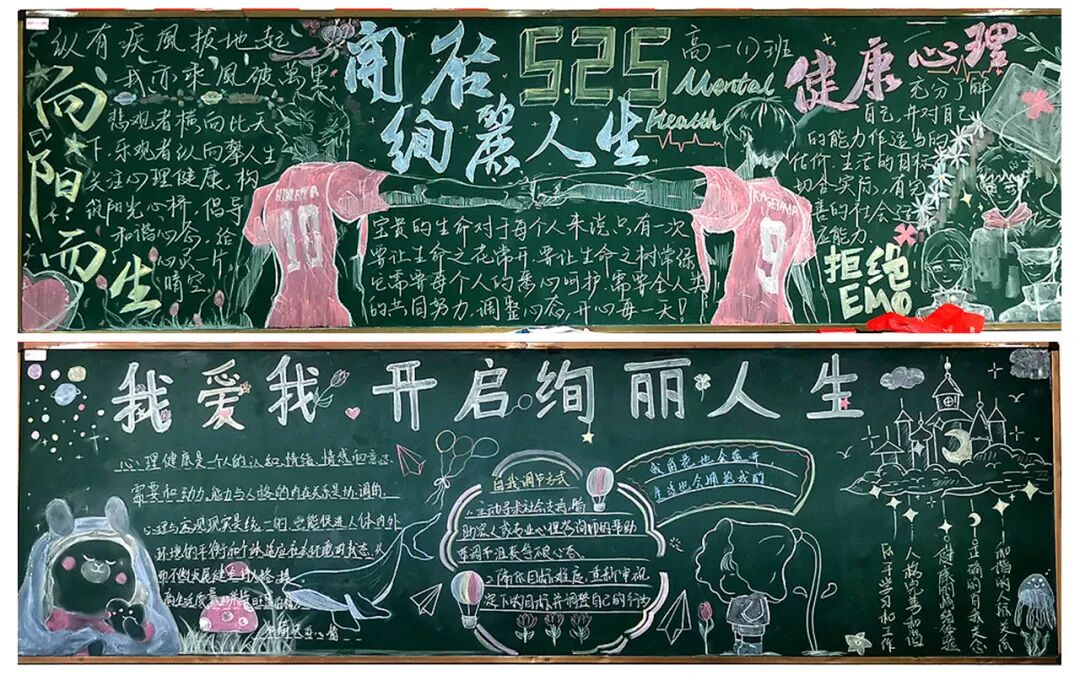 纵有疾風拔地起
我亦乘風破萬里
向阳而生
悲观者横向比天
下,乐观者纵向攀人生
关注心理健康,构
筑阳光心桥,倡导
和谐心态,给
心灵一片
晴空
開启
5.25
绚麗人生
高一(1)班
Mental
Health
健康心理
HINATA
10
KAGEYAMA
9
宝贵的生命对于每个人来说只有一次
要让生命之花常开,要让生命之树常绿
它需要每个人的悉心呵护,需要全人类
的共同努力,调整心态,开心每一天!
充分了解
自己,并对自己
的能力作适当的
估价,生活的目标
切合实际,有完
善的社会适
应能力
拒绝
EMO
我爱我 开启绚丽人生
心理健康是个人的认知、情绪、情感和意志
需要和动力,能力与人格的内在关系是协调的,
心理与客观现实是统一的,它能促进人体内外
环境的平衡和个体适应社会环境的状态,从
而不断发展健全的人格,提
高生活质量,保持旺盛的精力
自我调节方式
1.主动寻求社会支持,借
助家人或专业心理咨询师的帮助
来调节沮丧等不良心态。
2.降低目标难度,重新审视
定下的目标并调整自己的行为
我前花也会盛开
生活也会拥抱我们
和谐的人际关系
正确的自我观念
健康的情绪体验
人格完整和谐
乐于学习和工作